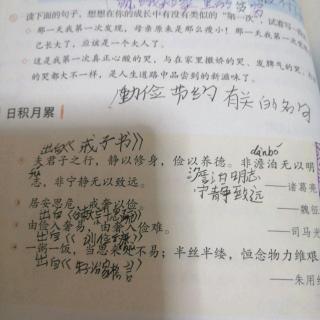 读下面的句子，想想在你的成长中有没有类似的“第一次”，试着写
那一天我第一次发现，母亲原来是那么瘦小！那一天我第一次觉
已长大了，应该是一个大人了。
这是我第一次真正心酸的哭，与在家里撒娇的哭、发脾气的哭、
的哭都大不一样，是人生道路中品尝到的新滋味了。
勤俭节约有关的名句
日积月累
出自《诫子书》
dànbó
夫君子之行，静以修身，俭以养德。非澹泊无以明
志，非宁静无以致远。
澹泊明志
宁静致远
——诸葛亮
居安思危，戒奢以俭。
——魏征
出自
由俭入奢易，由奢入俭难。
——司马光
出自《训俭示康》
一粥一饭，当思来处不易；半丝半缕，恒念物力维艰
出自《朱子治家格言》
——朱用纯